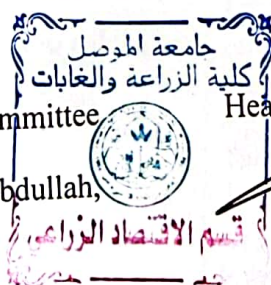 جامعة الموصل
كلية الزراعة والغابات
mmittee Hea
bdullah,
قسم الاقتصاد الزراعي